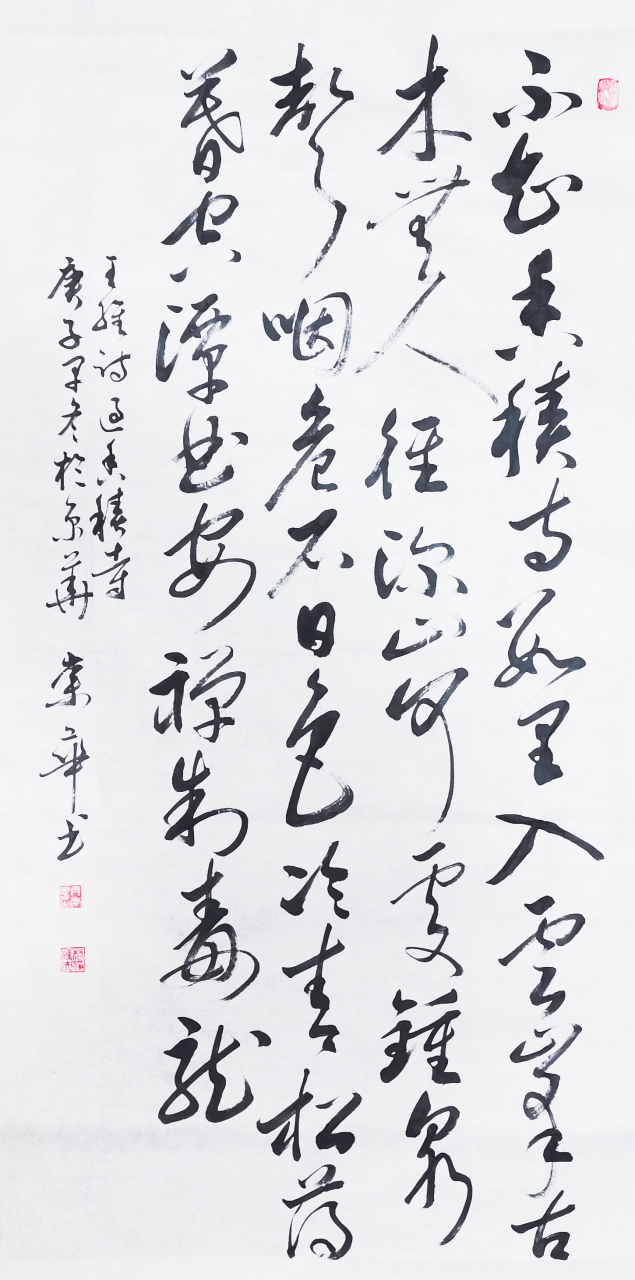 不知香積寺數里入雲峯古
木無人徑深山何處鍾泉
聲咽危石日色冷青松薄
暮空潭曲安禪制毒龍
王維詩過香積寺
庚子早冬於京華 崇華书